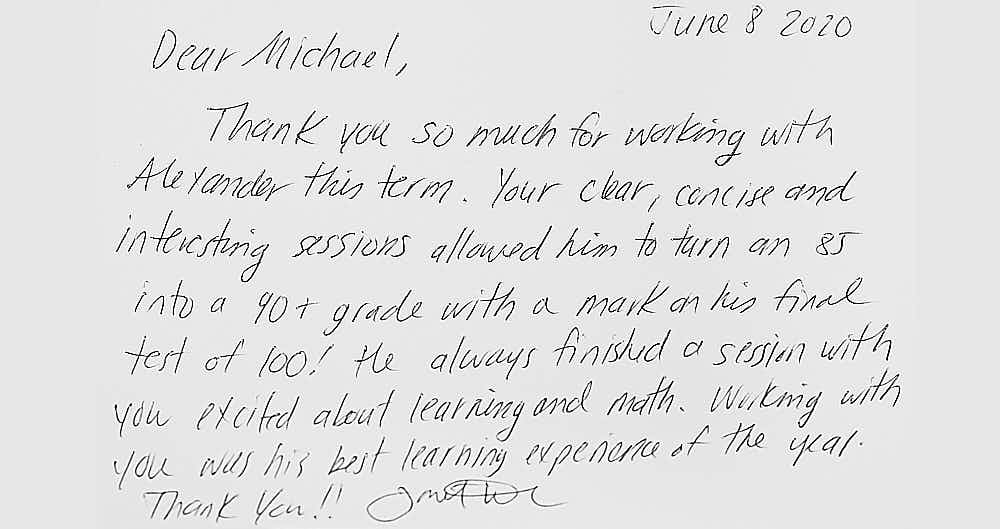 June 8 2020
Dear Michael,
Thank you so much for working with
Alexander this term. Your clear, concise and
interesting sessions allowed him to turn an 85
into a 90+ grade with a mark on his final
test of 100! He always finished a session with
you excited about learning and math. Working with
you was his best learning experience of the year.
Thank You!!